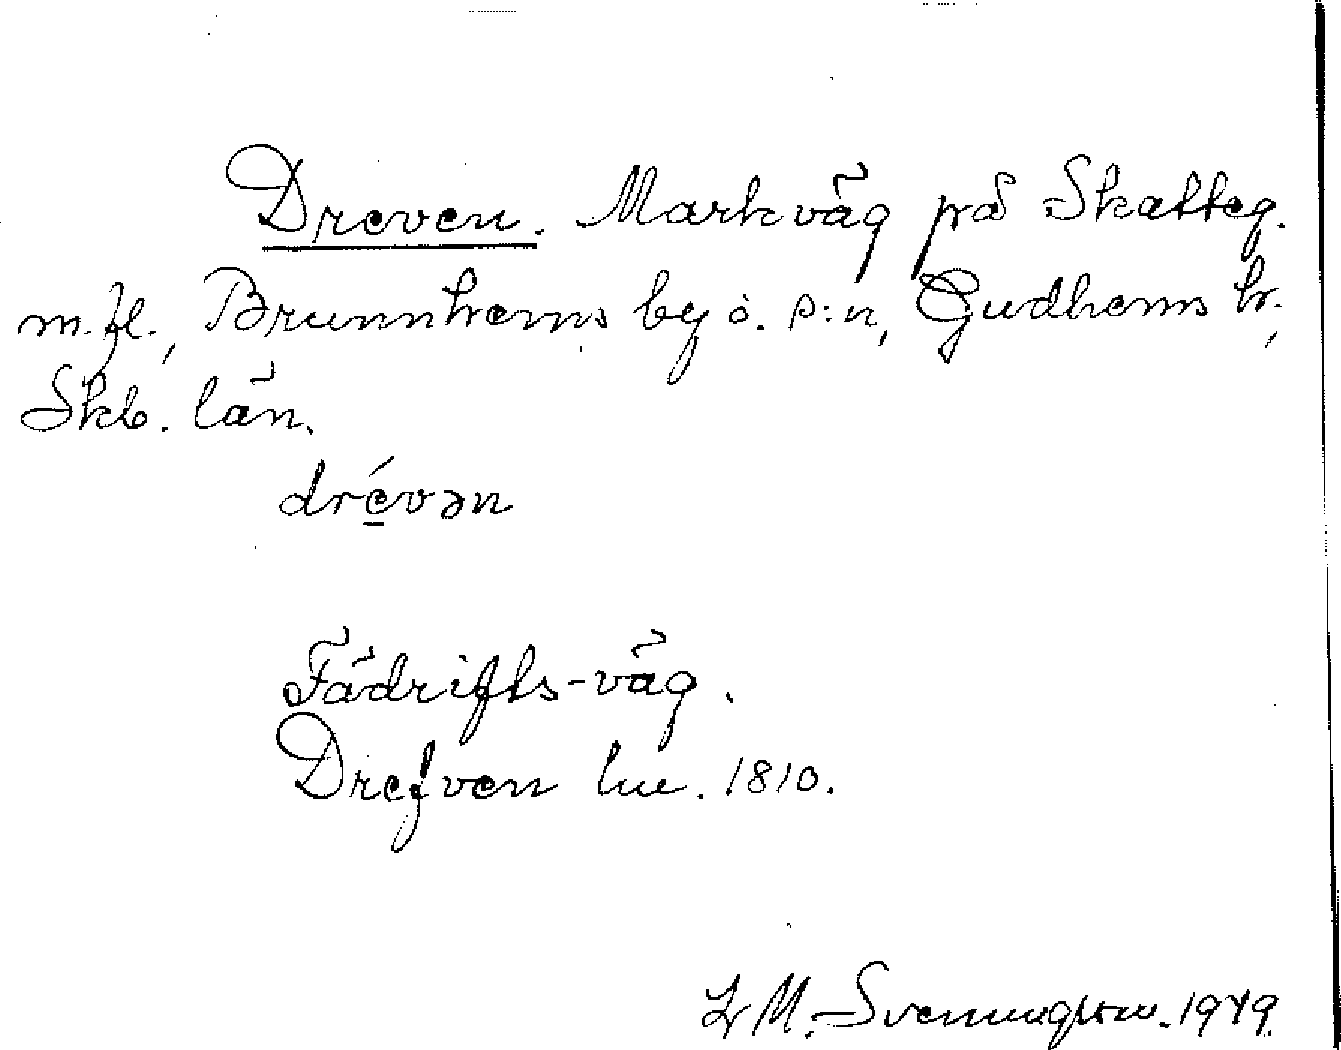 Dreven. Markväg på Skatteg.
m.fl., Brunnhems by o. s:n, Gudhems hr.,
Skb. län.
drévən
Fädrifts-väg.
Drefven lue. 1810.
M. Svenungsson. 1949.